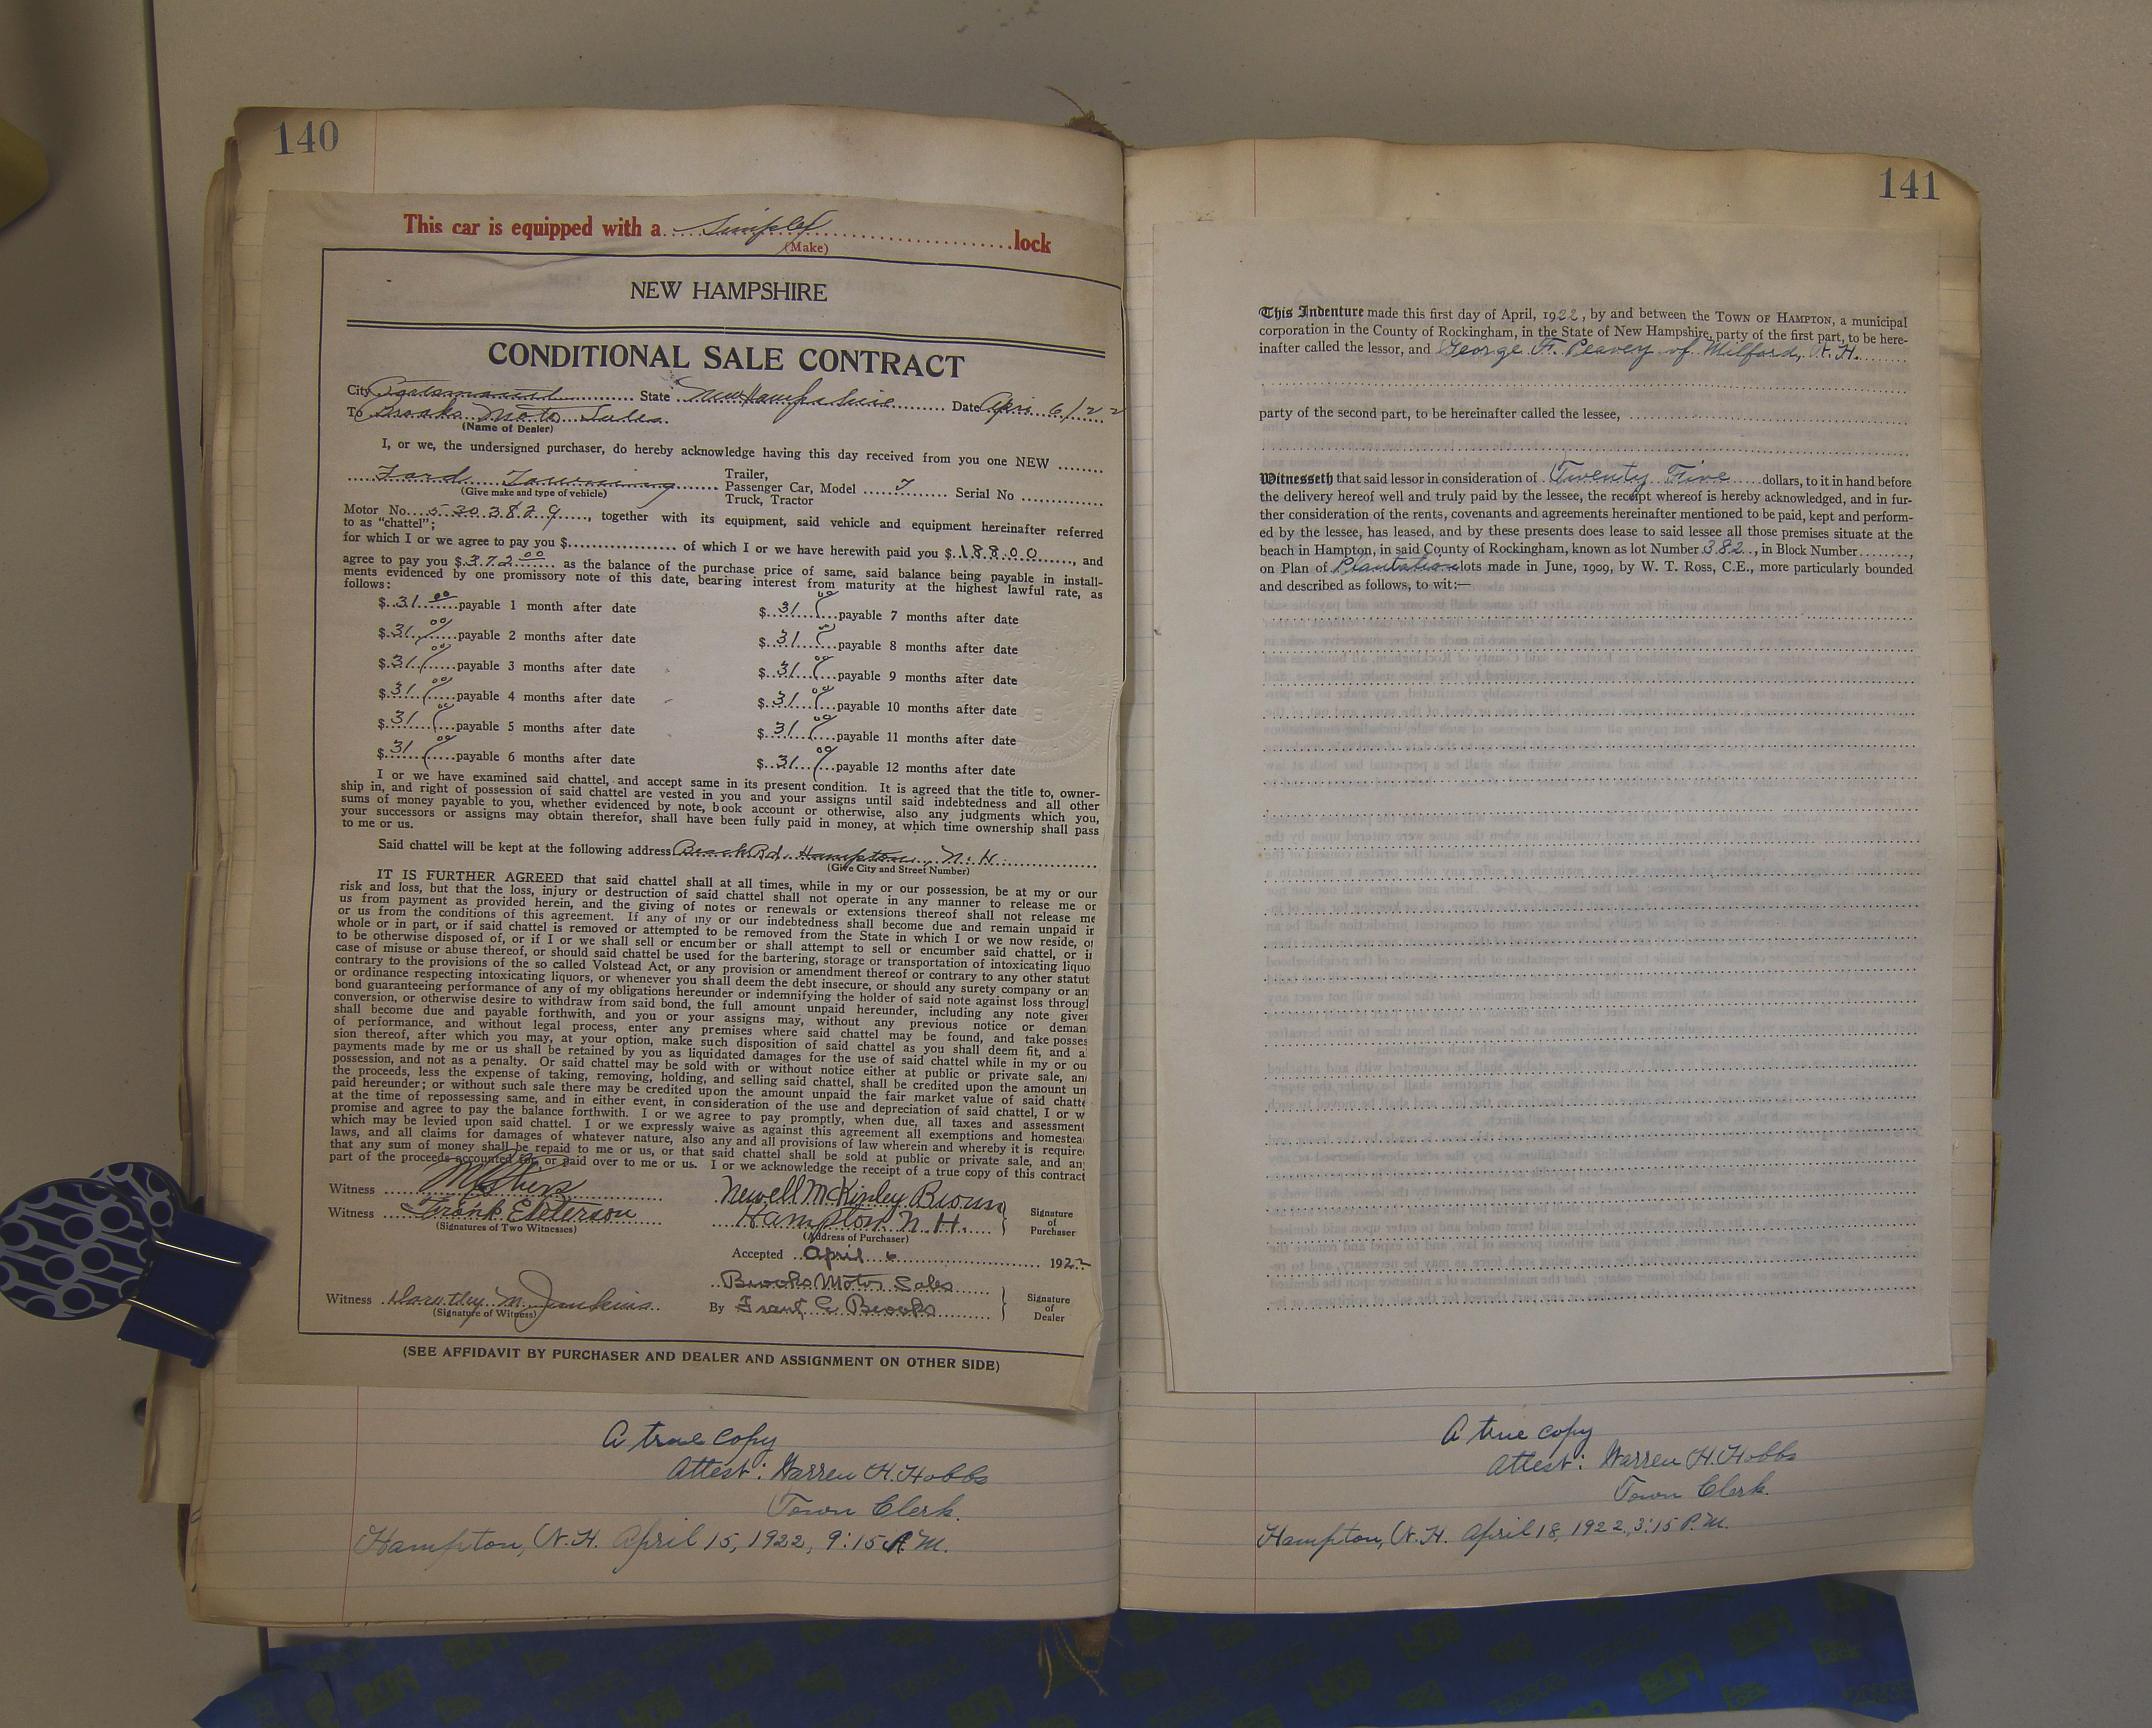 140
This car is equipped with a Simplex lock
(Make)
NEW HAMPSHIRE
CONDITIONAL SALE CONTRACT
City Portsmouth State New Hampshire Date Apri 6/22
To Brooks Moto Sales
(Name of Dealer)
I, or we, the undersigned purchaser, do hereby acknowledge having this day received from you one NEW
Ford Touring Trailer, Passenger Car, Model T Serial No
(Give make and type of vehicle) Truck, Tractor
Motor No. 5303829, together with its equipment, said vehicle and equipment hereinafter referred
to as "chattel";
for which I or we agree to pay you $ of which I or we have herewith paid you $ 188.00, and
agree to pay you $ 372 00 as the balance of the purchase price of same, said balance being payable in install-
ments evidenced by one promissory note of this date, bearing interest from maturity at the highest lawful rate, as
follows:
$ 31 00 payable 1 month after date $ 31 00 payable 7 months after date
$ 31 00 payable 2 months after date $ 31 00 payable 8 months after date
$ 31 00 payable 3 months after date $ 31 00 payable 9 months after date
$ 31 00 payable 4 months after date $ 31 00 payable 10 months after date
$ 31 00 payable 5 months after date $ 31 00 payable 11 months after date
$ 31 00 payable 6 months after date $ 31 00 payable 12 months after date
I or we have examined said chattel, and accept same in its present condition. It is agreed that the title to, owner-
ship in, and right of possession of said chattel are vested in you and your assigns until said indebtedness and all other
sums of money payable to you, whether evidenced by note, book account or otherwise, also any judgments which you,
your successors or assigns may obtain therefor, shall have been fully paid in money, at which time ownership shall pass
to me or us.
Said chattel will be kept at the following address Beach Rd. Hampton, N. H.
(Give City and Street Number)
IT IS FURTHER AGREED that said chattel shall at all times, while in my or our possession, be at my or our
risk and loss, but that the loss, injury or destruction of said chattel shall not operate in any manner to release me or
us from payment as provided herein, and the giving of notes or renewals or extensions thereof shall not release me
or us from the conditions of this agreement. If any of my or our indebtedness shall become due and remain unpaid in
whole or in part, or if said chattel is removed or attempted to be removed from the State in which I or we now reside, or
to be otherwise disposed of, or if I or we shall sell or encumber or shall attempt to sell or encumber said chattel, or i
case of misuse or abuse thereof, or should said chattel be used for the bartering, storage or transportation of intoxicating liquo
contrary to the provisions of the so called Volstead Act, or any provision or amendment thereof or contrary to any other statut
or ordinance respecting intoxicating liquors, or whenever you shall deem the debt insecure, or should any surety company or an
bond guaranteeing performance of any of my obligations hereunder or indemnifying the holder of said note against loss throug
conversion, or otherwise desire to withdraw from said bond, the full amount unpaid hereunder, including any note given
shall become due and payable forthwith, and you or your assigns may, without any previous notice or deman
of performance, and without legal process, enter any premises where said chattel may be found, and take posses
sion thereof, after which you may, at your option, make such disposition of said chattel as you shall deem fit, and a
payments made by me or us shall be retained by you as liquidated damages for the use of said chattel while in my or ou
possession, and not as a penalty. Or said chattel may be sold with or without notice either at public or private sale, an
the proceeds, less the expense of taking, removing, holding, and selling said chattel, shall be credited upon the amount un
paid hereunder; or without such sale there may be credited upon the amount unpaid the fair market value of said chatte
at the time of repossessing same, and in either event, in consideration of the use and depreciation of said chattel, I or w
promise and agree to pay the balance forthwith. I or we agree to pay promptly, when due, all taxes and assessment
which may be levied upon said chattel. I or we expressly waive as against this agreement all exemptions and homestea
laws, and all claims for damages of whatever nature, also any and all provisions of law wherein and whereby it is require
that any sum of money shall be repaid to me or us, or that said chattel shall be sold at public or private sale, and an
part of the proceeds accounted for, or paid over to me or us. I or we acknowledge the receipt of a true copy of this contract
Witness Newell McKinley Brown Signature
Witness Frank E Peterson Hampton N. H. of
(Signatures of Two Witnesses) (Address of Purchaser) Purchaser
Accepted April 6 1922
Brooks Motor Sales Signature
Witness Dorothy M. Junkins By Frank E Brooks of
(Signature of Witness) Dealer
(SEE AFFIDAVIT BY PURCHASER AND DEALER AND ASSIGNMENT ON OTHER SIDE)
A true copy
Attest: Warren H. Hobbs
Town Clerk.
Hampton, N. H. April 15, 1922, 9:15 A. M.
141
This Indenture made this first day of April, 1922, by and between the TOWN OF HAMPTON, a municipal
corporation in the County of Rockingham, in the State of New Hampshire, party of the first part, to be here-
inafter called the lessor, and George F. Peavey of Milford, N. H.
party of the second part, to be hereinafter called the lessee,
Witnesseth that said lessor in consideration of Twenty Five dollars, to it in hand before
the delivery hereof well and truly paid by the lessee, the receipt whereof is hereby acknowledged, and in fur-
ther consideration of the rents, covenants and agreements hereinafter mentioned to be paid, kept and perform-
ed by the lessee, has leased, and by these presents does lease to said lessee all those premises situate at the
beach in Hampton, in said County of Rockingham, known as lot Number 382, in Block Number
on Plan of Plantation lots made in June, 1909, by W. T. Ross, C.E., more particularly bounded
and described as follows, to wit:—
A true copy
Attest: Warren H. Hobbs
Town Clerk.
Hampton, N. H. April 18, 1922, 3:15 P. M.